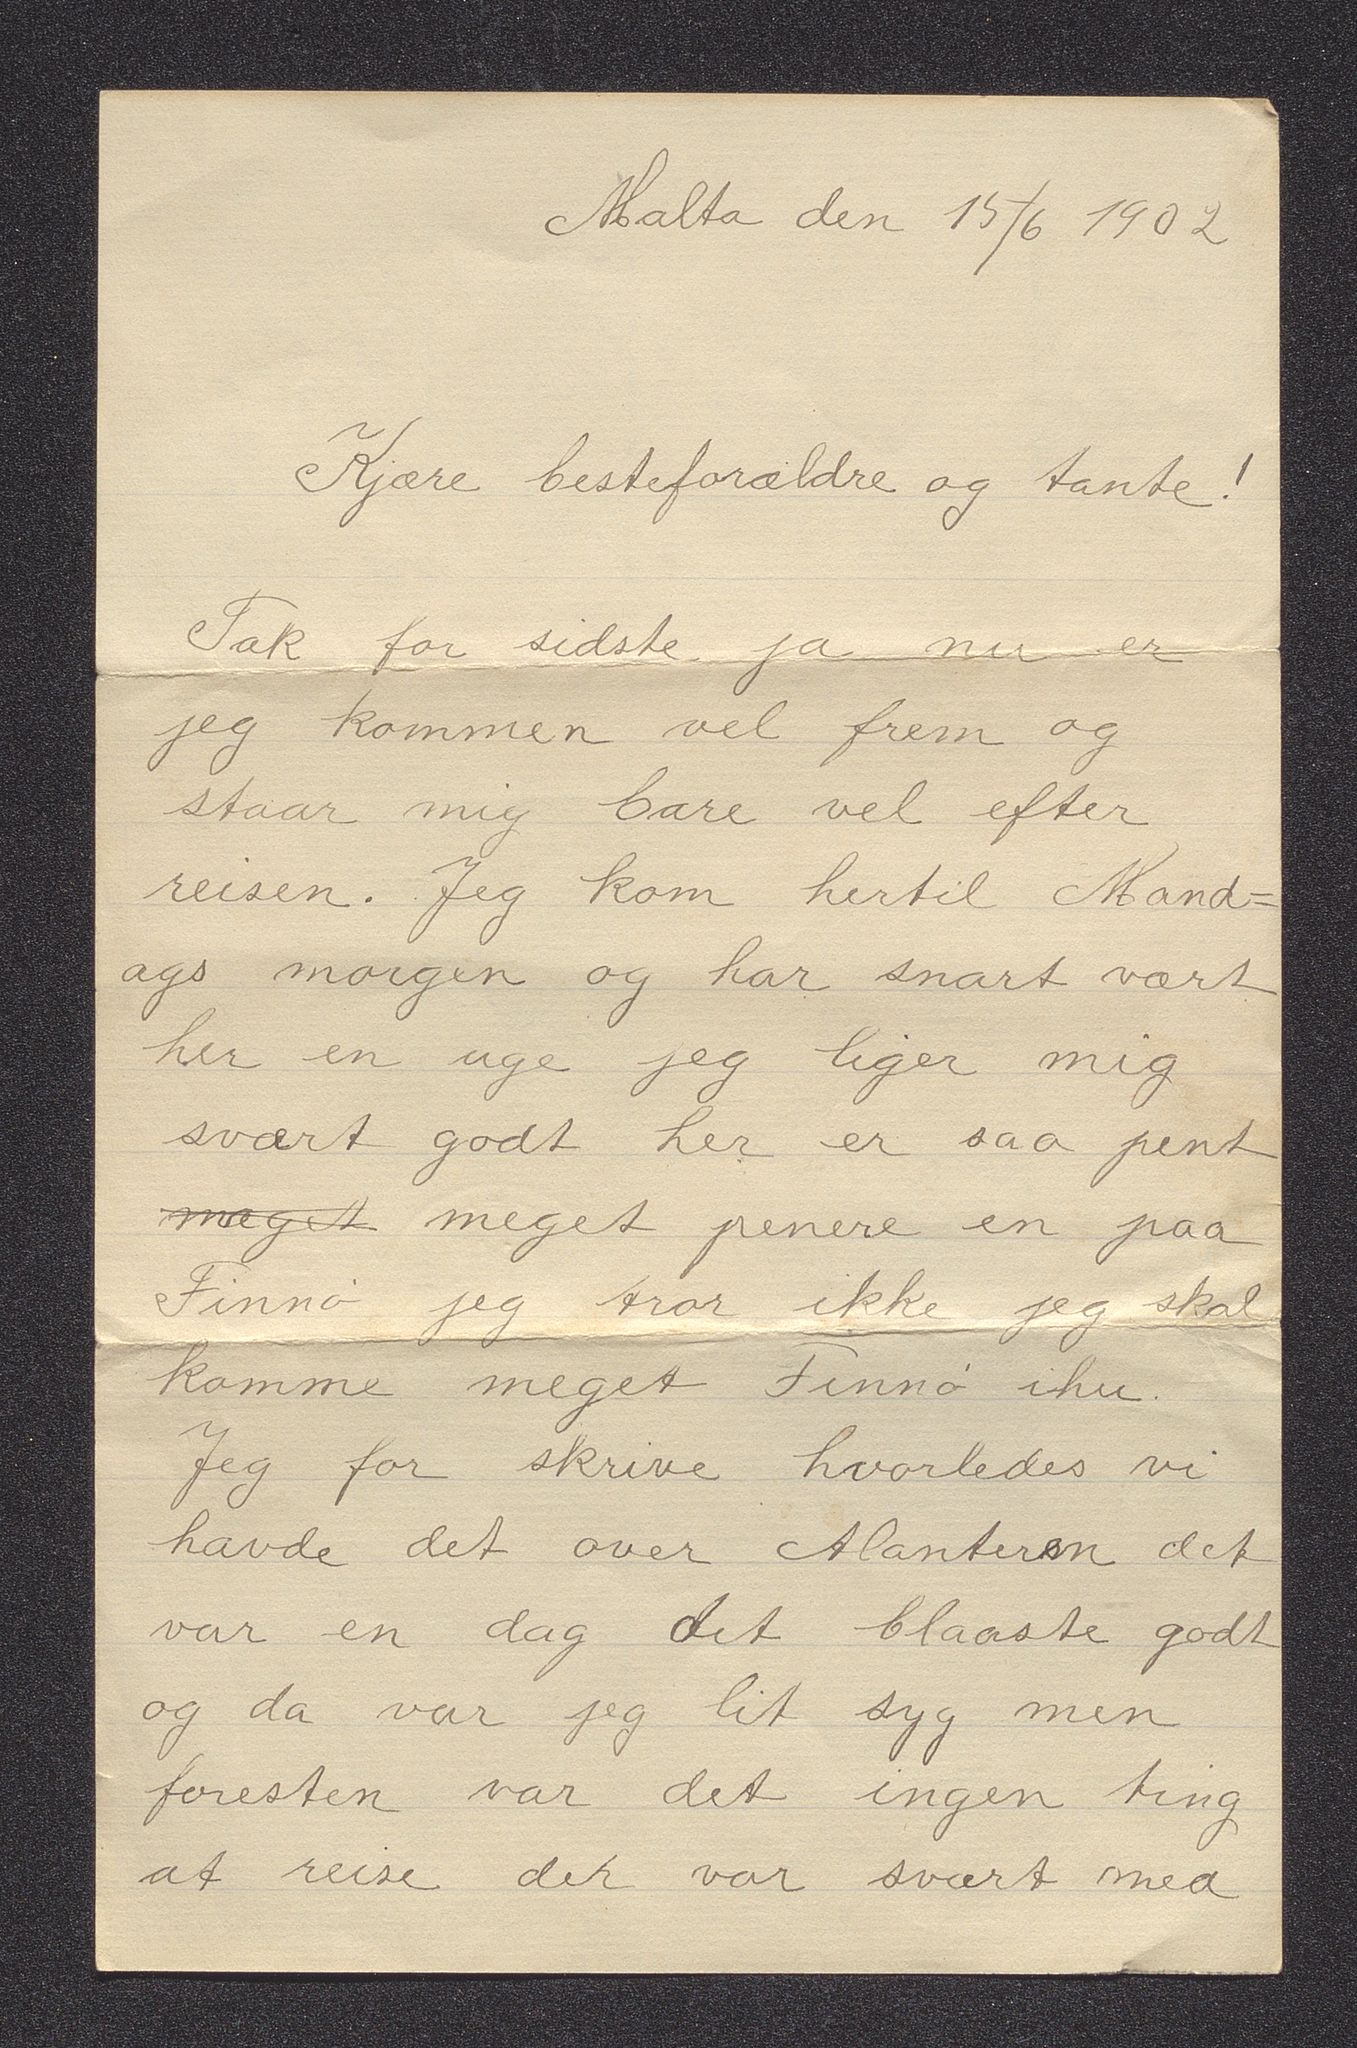 Malta den 15/6 1902
Kjære besteforældre og tante!
Tak for sidste ja nu er
jeg kommen vel frem og
staar mig bare vel efter
reisen. Jeg kom hertil Mand=
ags morgen og har snart vært
her en uge jeg liger mig
svært godt her er saa pent
meget meget penere en paa
Finnö jeg tror ikke jeg skal
komme meget Finnö ihu.
Jeg for skrive hvorledes vi
havde det over Atlanteren det
var en dag det blaaste godt
og da var jeg lit syg men
foresten var det ingen ting
at reise det var svært med